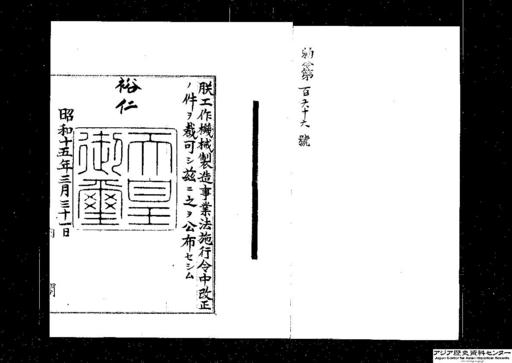 勅令第百六十九號
朕工作機械製造事業法施行令中改正
ノ件ヲ裁可シ茲ニ之ヲ公布セシム
裕仁
天皇御璽
昭和十五年三月三十一日
内閣
アジア歴史資料センター
Japan Center for Asian Historical Records